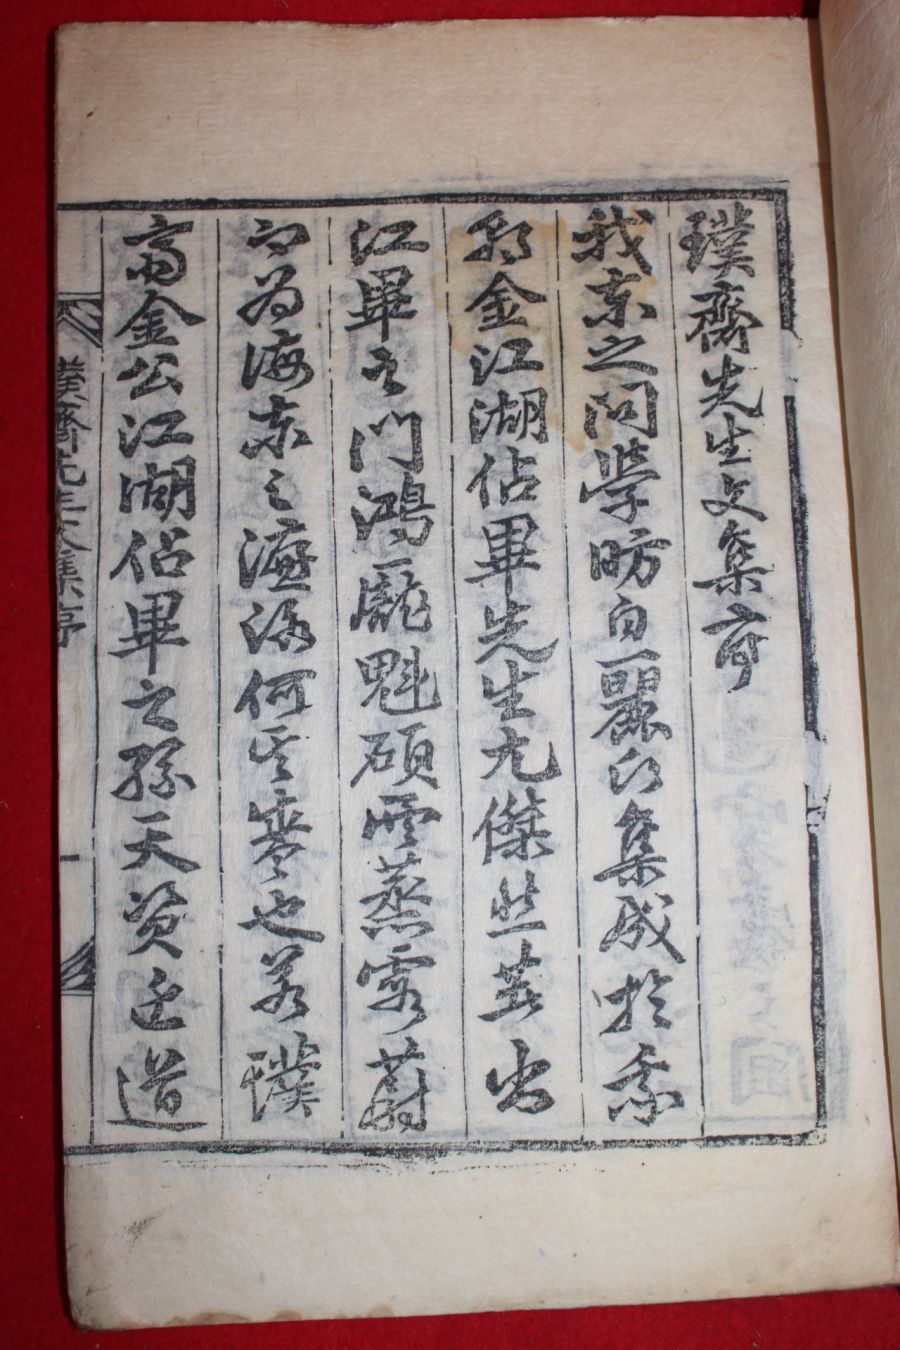 璞齋先生文集序
我東之問學昉自麗氏集成於季
朝金江湖佔畢先生尤傑然並出
江畢之門鴻厖魁碩雲蒸霧蔚
而爲海東之濂洛何其盛也若璞
齋金公江湖佔畢之孫天資近道
璞齋先生文集序
一